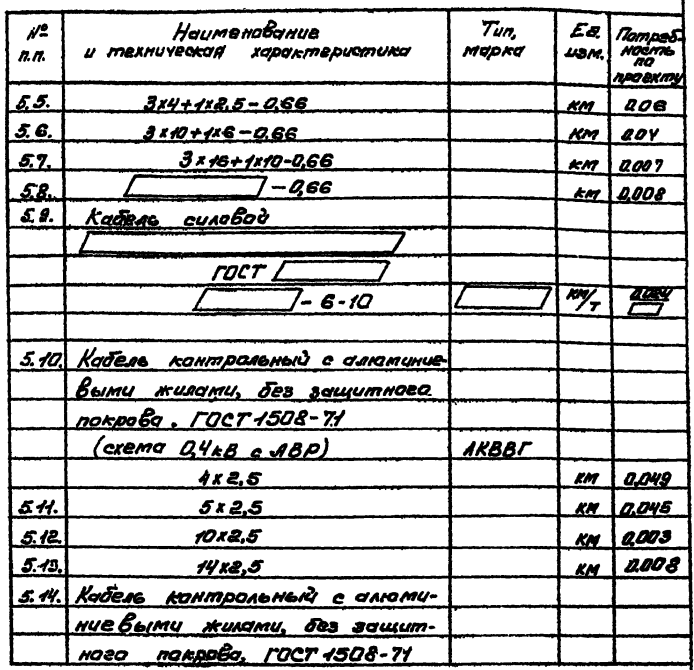 № п.п. Наименование и техническая характеристика Тип, марка Ед. изм. Потребность по проекту
5.5. 3х4+1х2,5-0,66 км 0.06
5.6. 3х10+1х6-0,66 км 0.04
5.7. 3х16+1х10-0,66 км 0.007
5.8. -0,66 км 0.008
5.9. Кабель силовой
ГОСТ
-6-10 км/т 0.024
5.10. Кабель контрольный с алюминие-
выми жилами, без защитного
покрова. ГОСТ 1508-71
(схема 0,4кВ с АВР) АКВВГ
4х2,5 км 0,049
5.11. 5х2,5 км 0,045
5.12. 10х2,5 км 0,003
5.13. 14х2,5 км 0.008
5.14. Кабель контрольный с алюми-
ниевыми жилами, без защит-
ного покрова, ГОСТ 1508-71